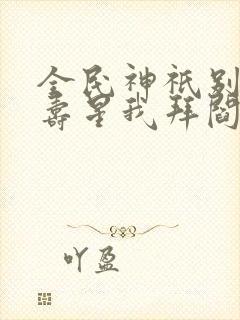 全民神祇别
寿星我拜阎
吖盈